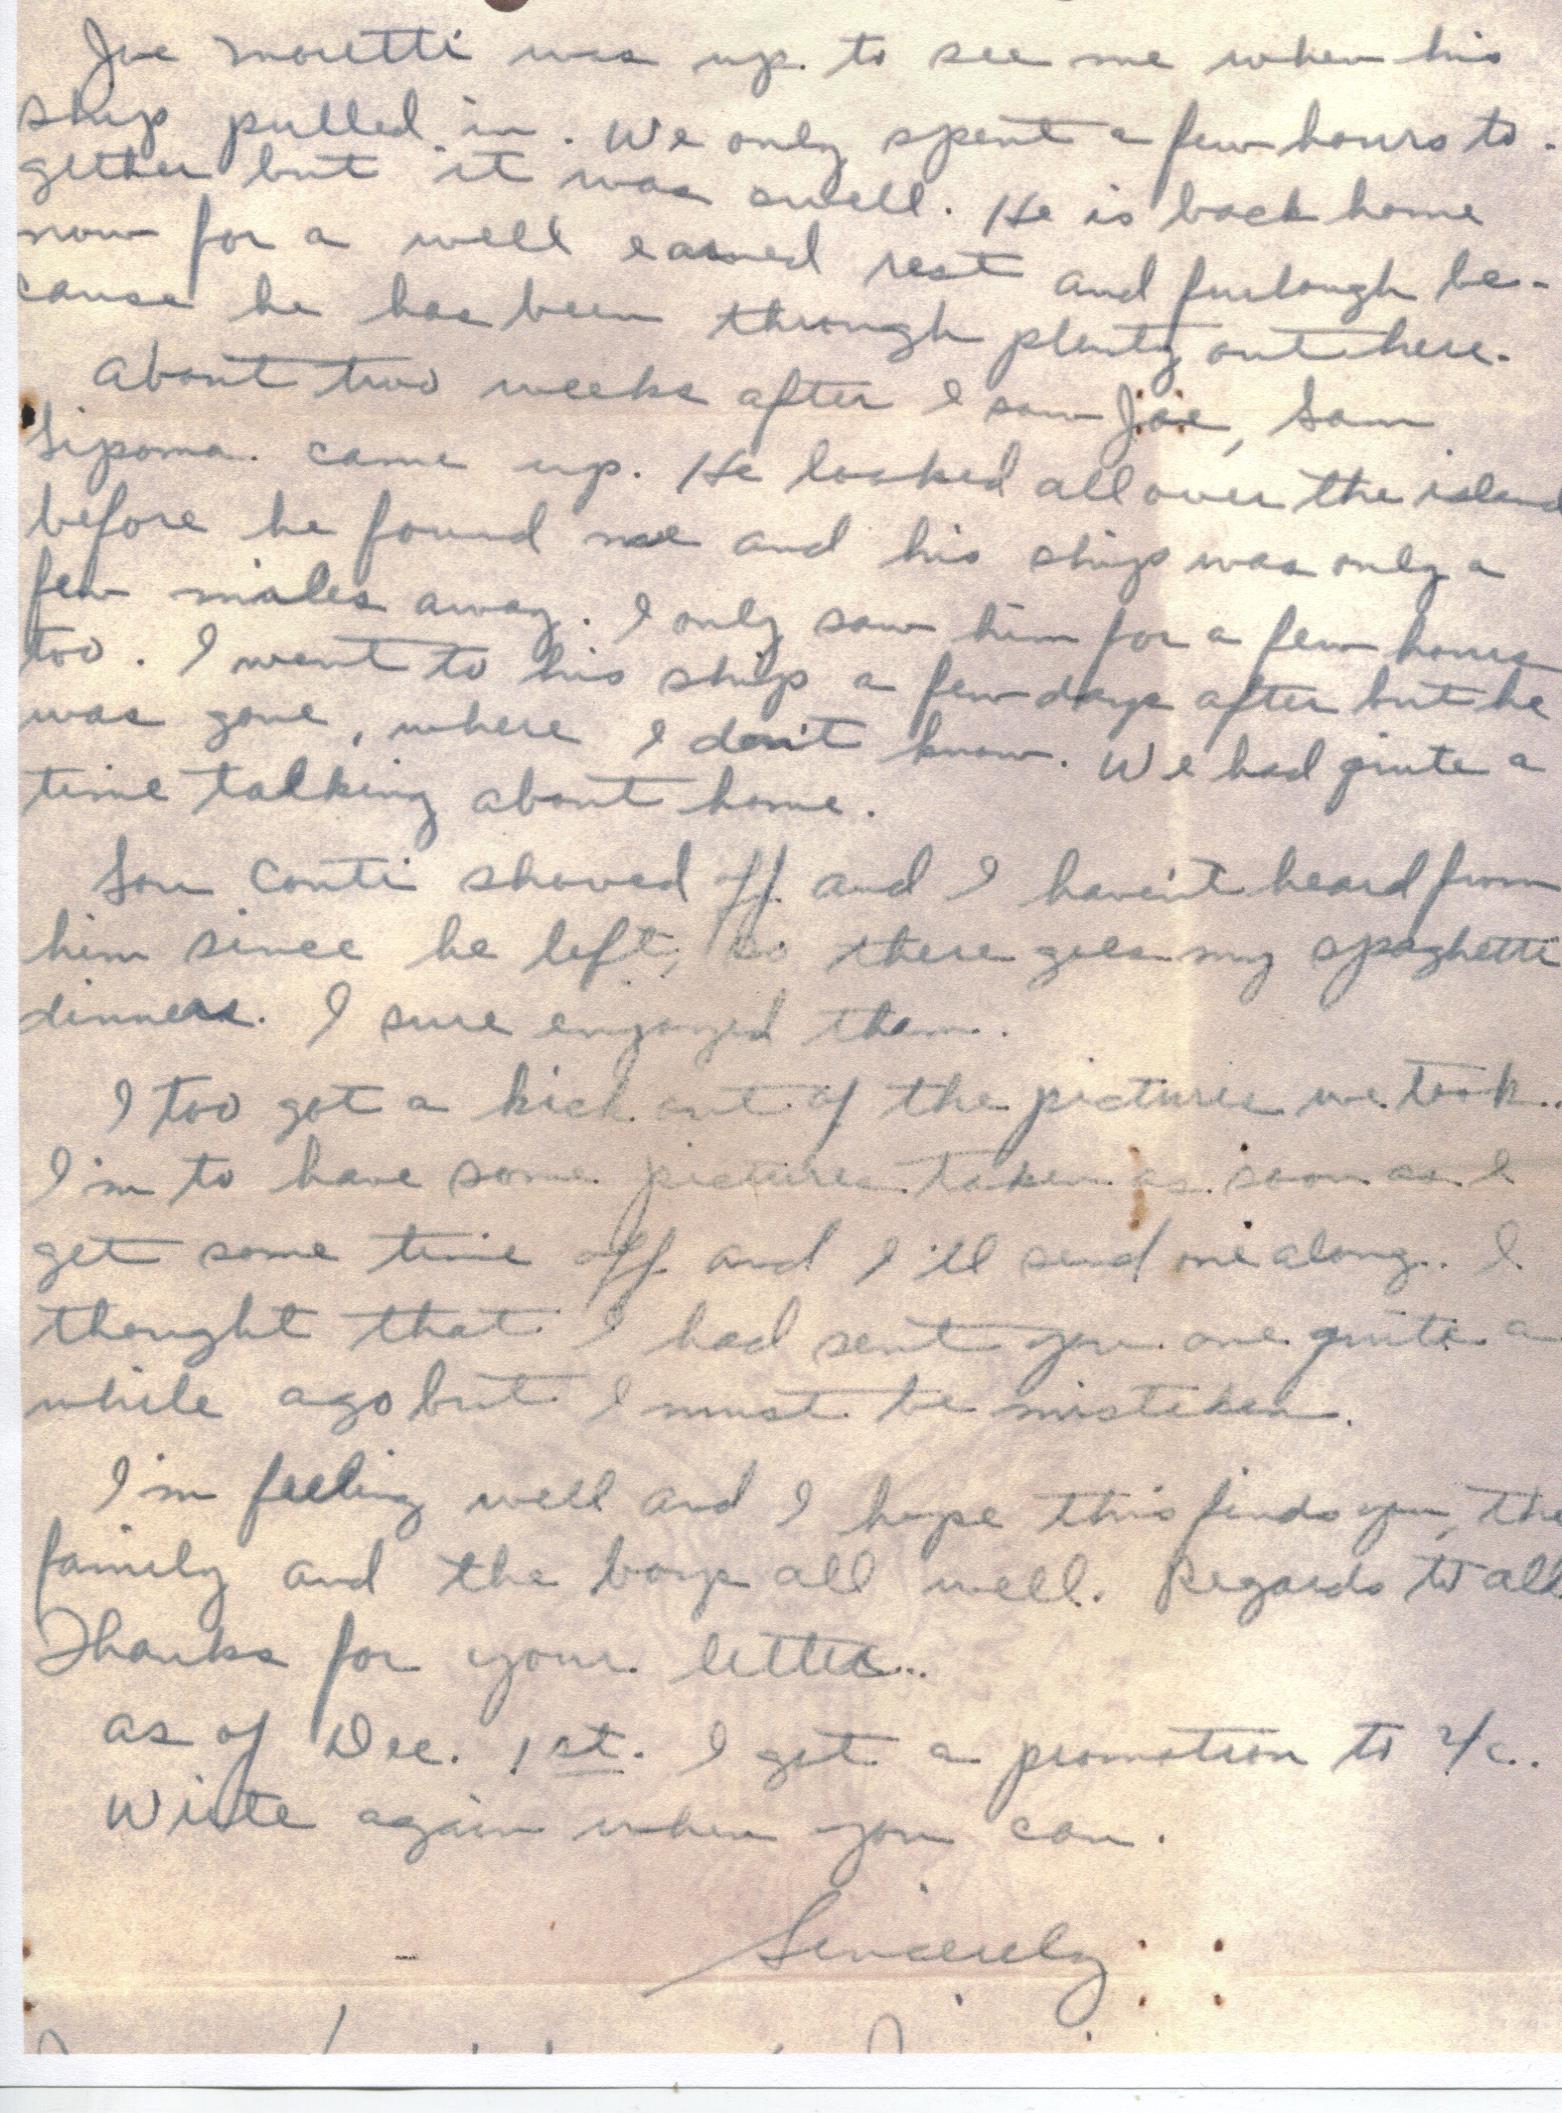 Joe Moretti was up to see me when his
ship pulled in. We only spent a few hours to-
gether but it was swell. He is back home
now for a well earned rest and furlough be-
cause he has been through plenty out here.
About two weeks after I saw Joe, Sam
Sipoma came up. He looked all over the island
before he found me and his ship was only a
few miles away. I only saw him for a few hours
too. I went to his ship a few days after but he
was gone, where I don't know. We had quite a
time talking about home.
Lou Conti shoved off and I haven't heard from
him since he left, so there goes my spaghetti
dinners. I sure enjoyed them.
I too got a kick out of the pictures we took.
I'm to have some pictures taken as soon as I
get some time off and I'll send one along. I
thought that I had sent you one quite a
while ago but I must be mistaken.
I'm feeling well and I hope this finds you, the
family and the boys all well. Regards to all
Thanks for your letter..
As of Dec. 1st. I got a promotion to 2/c..
Write again when you can.
Sincerely